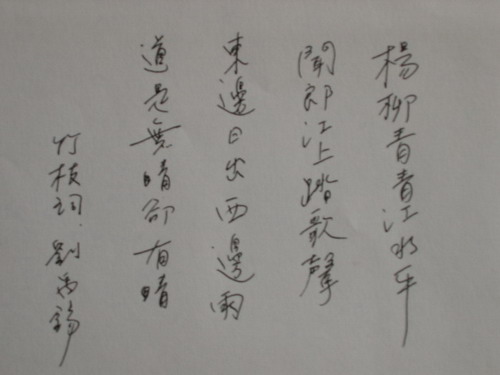 楊柳青青江水平
聞郎江上踏歌聲
東邊日出西邊雨
道是無晴卻有晴
竹枝詞.劉禹錫